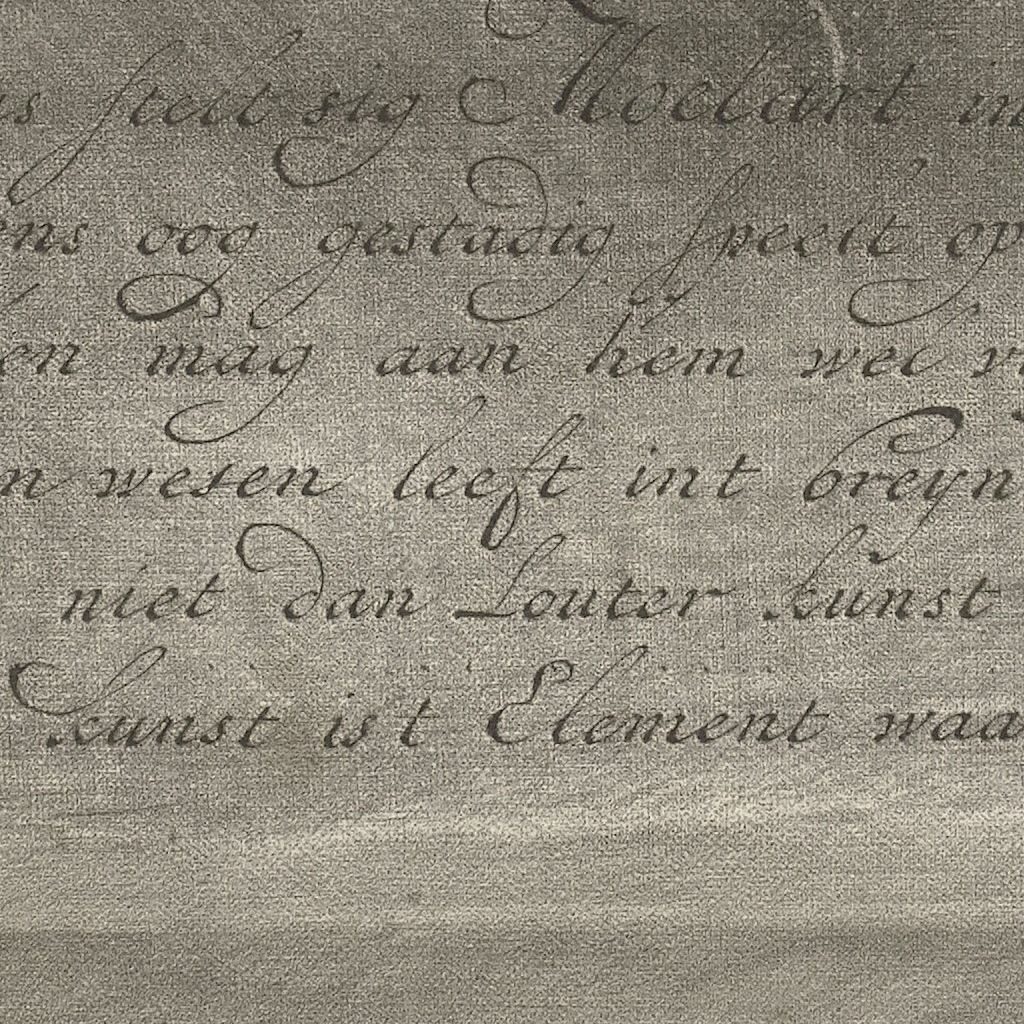 stelt sig Moelart in
ens oog gestadig speelt op
en mag aan hem wel
n wesen leeft int breyn
niet dan Louter kunst
kunst ist Element waa